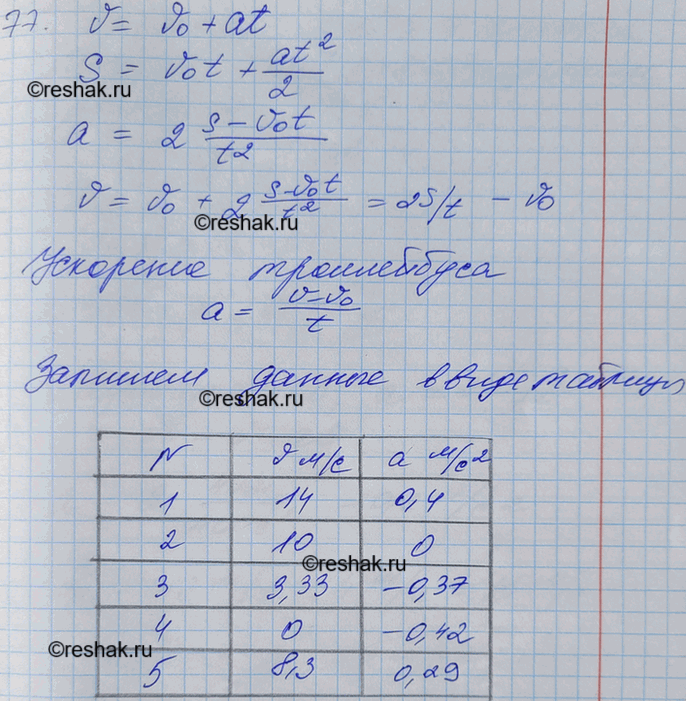 77. v = v₀ + at
S = v₀t + at²/2
©reshak.ru
a = 2 (s - v₀t)/t²
v = v₀ + 2 (s - v₀t)/t² = 2S/t - v₀
©reshak.ru
Ускорение троллейбуса
a = (v - v₀)/t
Запишем данные в виде таблицы
©reshak.ru
N v м/с a м/с²
1 14 0,4
2 10 0
©reshak.ru
3 3,33 -0,37
4 0 -0,42
©reshak.ru
5 8,3 0,29